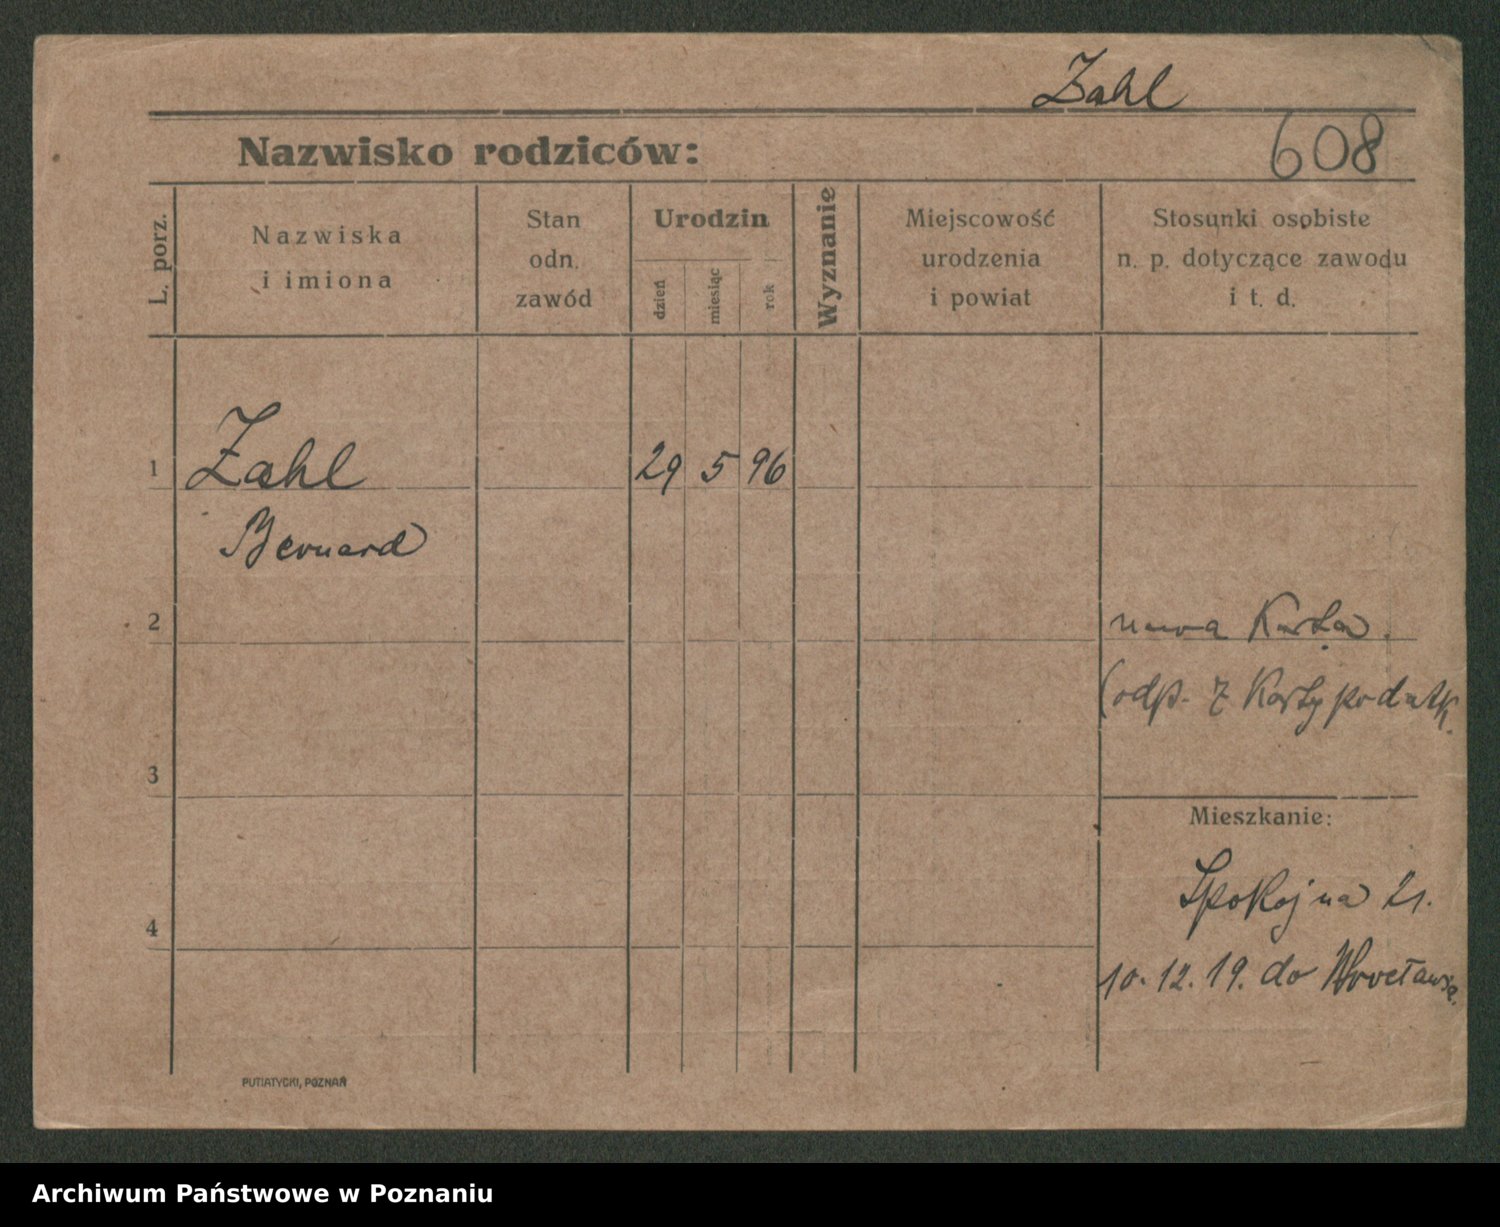 Zahl
Nazwisko rodziców:
608
L. porz.
Nazwiska
i imiona
Stan
odn.
zawód
Urodzin
dzień
miesiąc
rok
Wyznanie
Miejscowość
urodzenia
i powiat
Stosunki osobiste
n. p. dotyczące zawodu
i t. d.
1
Zahl
29 5 96
Bernard
2
nowa Karta.
(odp. z Karty podatk.
3
Mieszkanie:
Spokojna 21.
4
10. 12. 19. do Wrocławia.
PUTIATYCKI, POZNAŃ
Archiwum Państwowe w Poznaniu